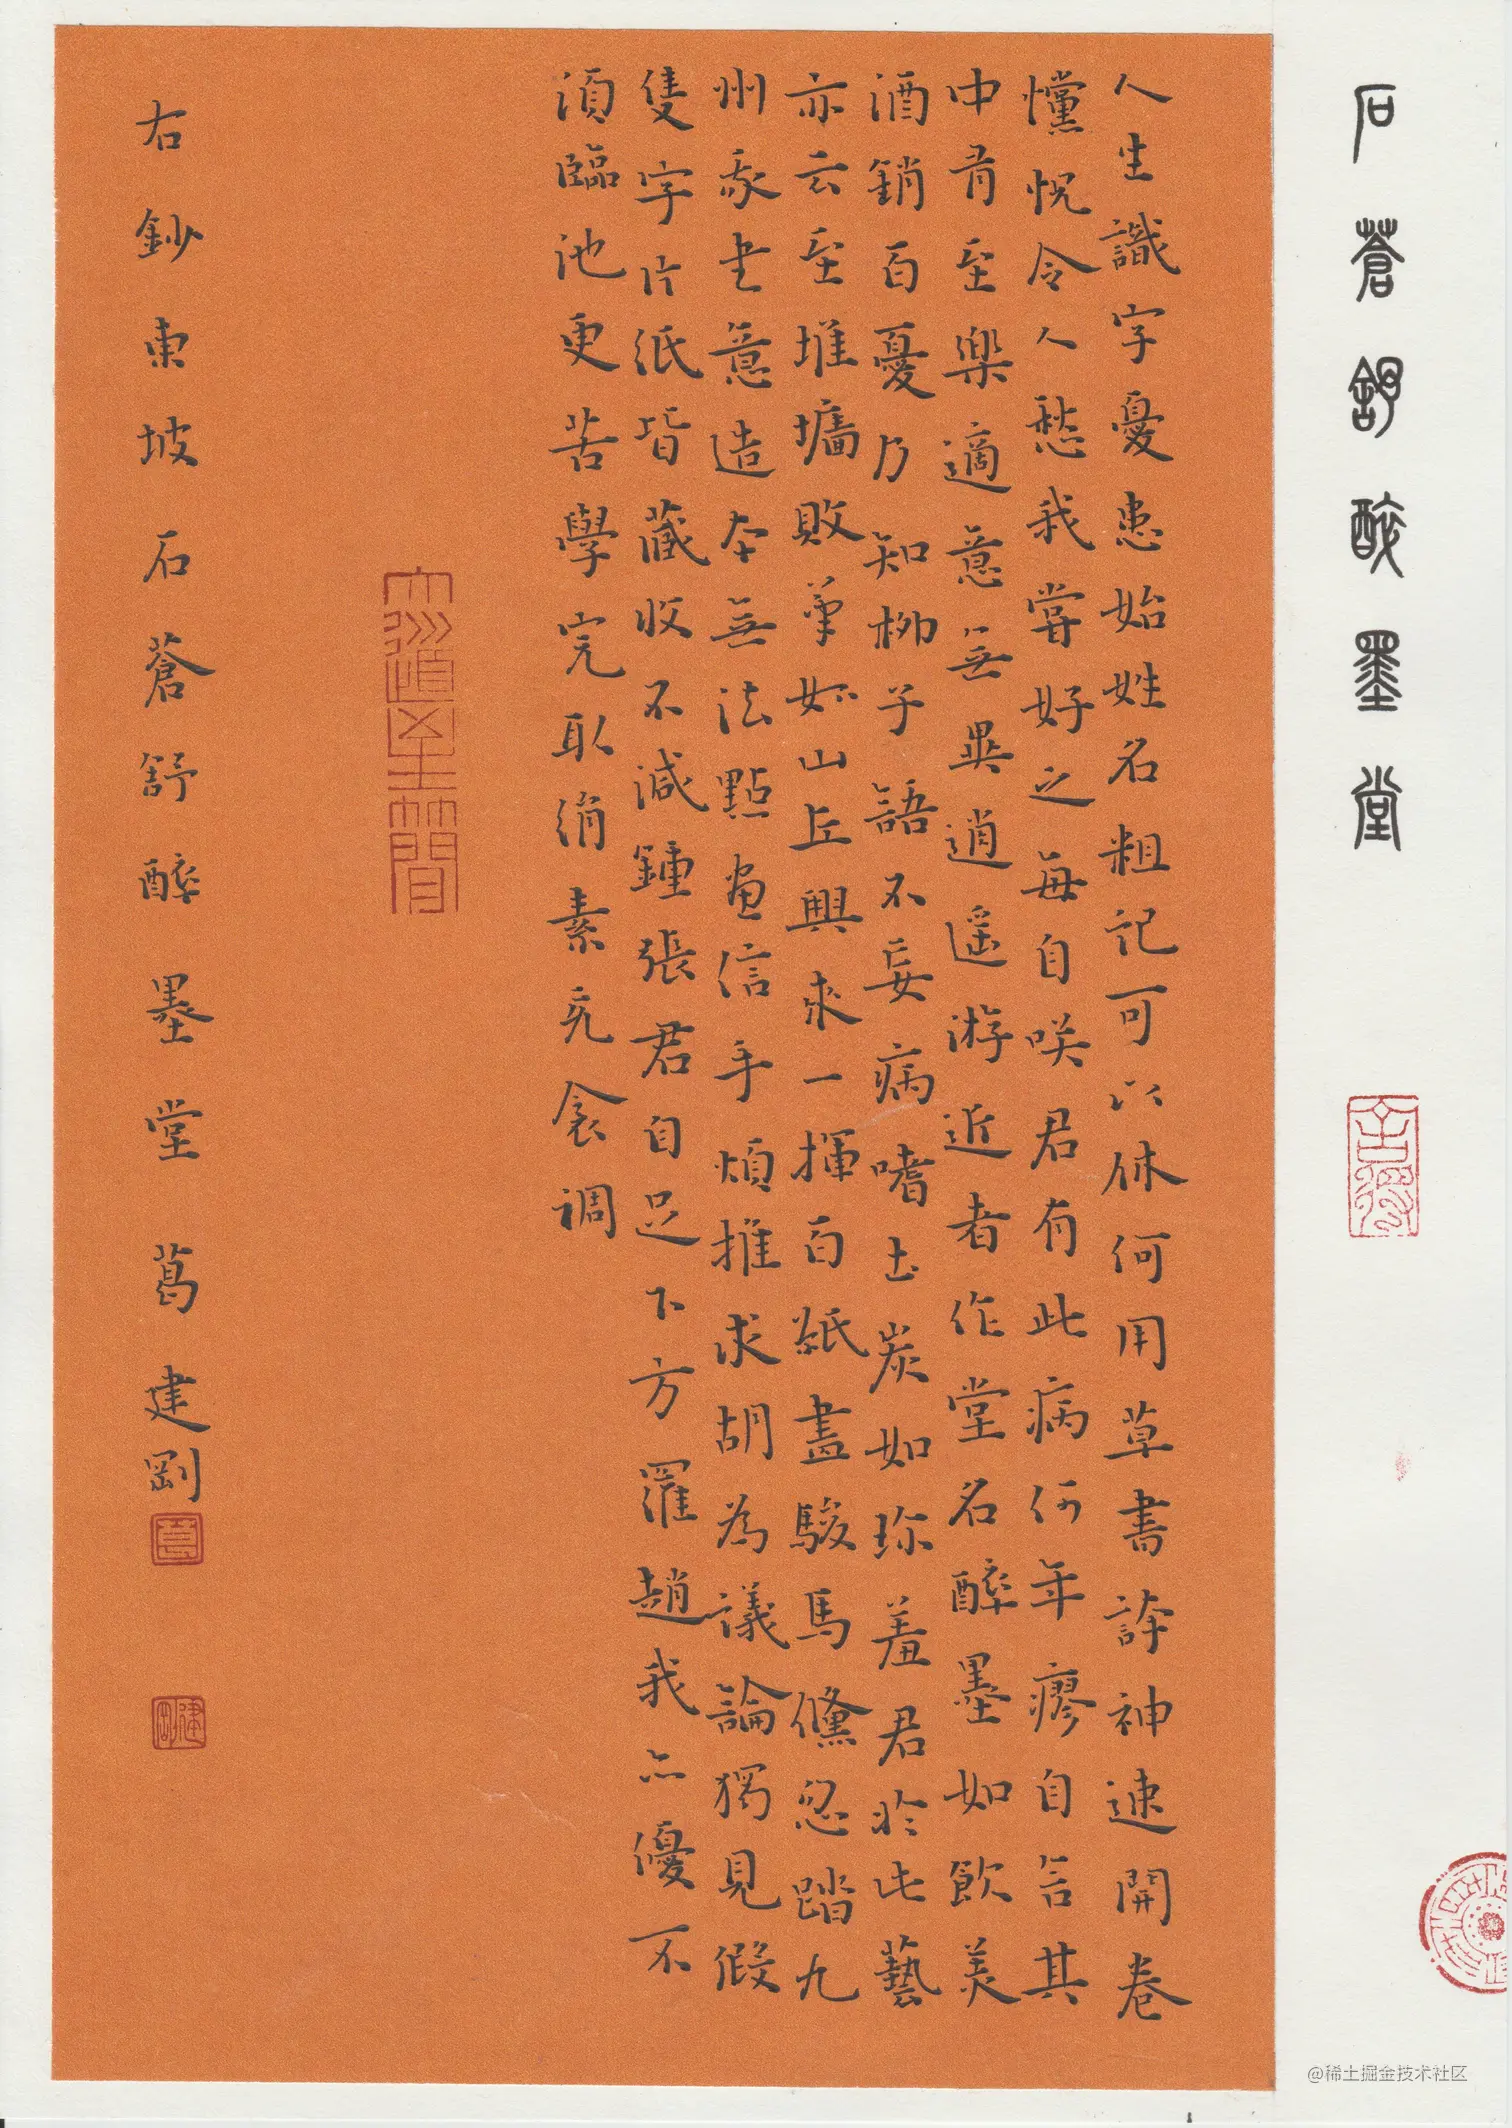 石蒼舒醉墨堂
人生識字憂患始姓名粗記可以休何用草書誇神速開卷
戃怳令人愁我嘗好之每自咲君有此病何年瘳自言其
中有至樂適意無異逍遥游近者作堂名醉墨如飲美
酒銷百憂乃知柳子語不妄病嗜土炭如珍羞君於此藝
亦云至堆墻敗筆如山丘興來一揮百紙盡駿馬儵忽踏九
州我書意造本無法點畫信手煩推求胡為議論獨見假
隻字片紙皆藏收不減鍾張君自足下方羅趙我亦優不
須臨池更苦學完取絹素充衾裯
大道至簡
右鈔東坡石蒼舒醉墨堂 葛建剛
葛
建剛
@稀土掘金技术社区